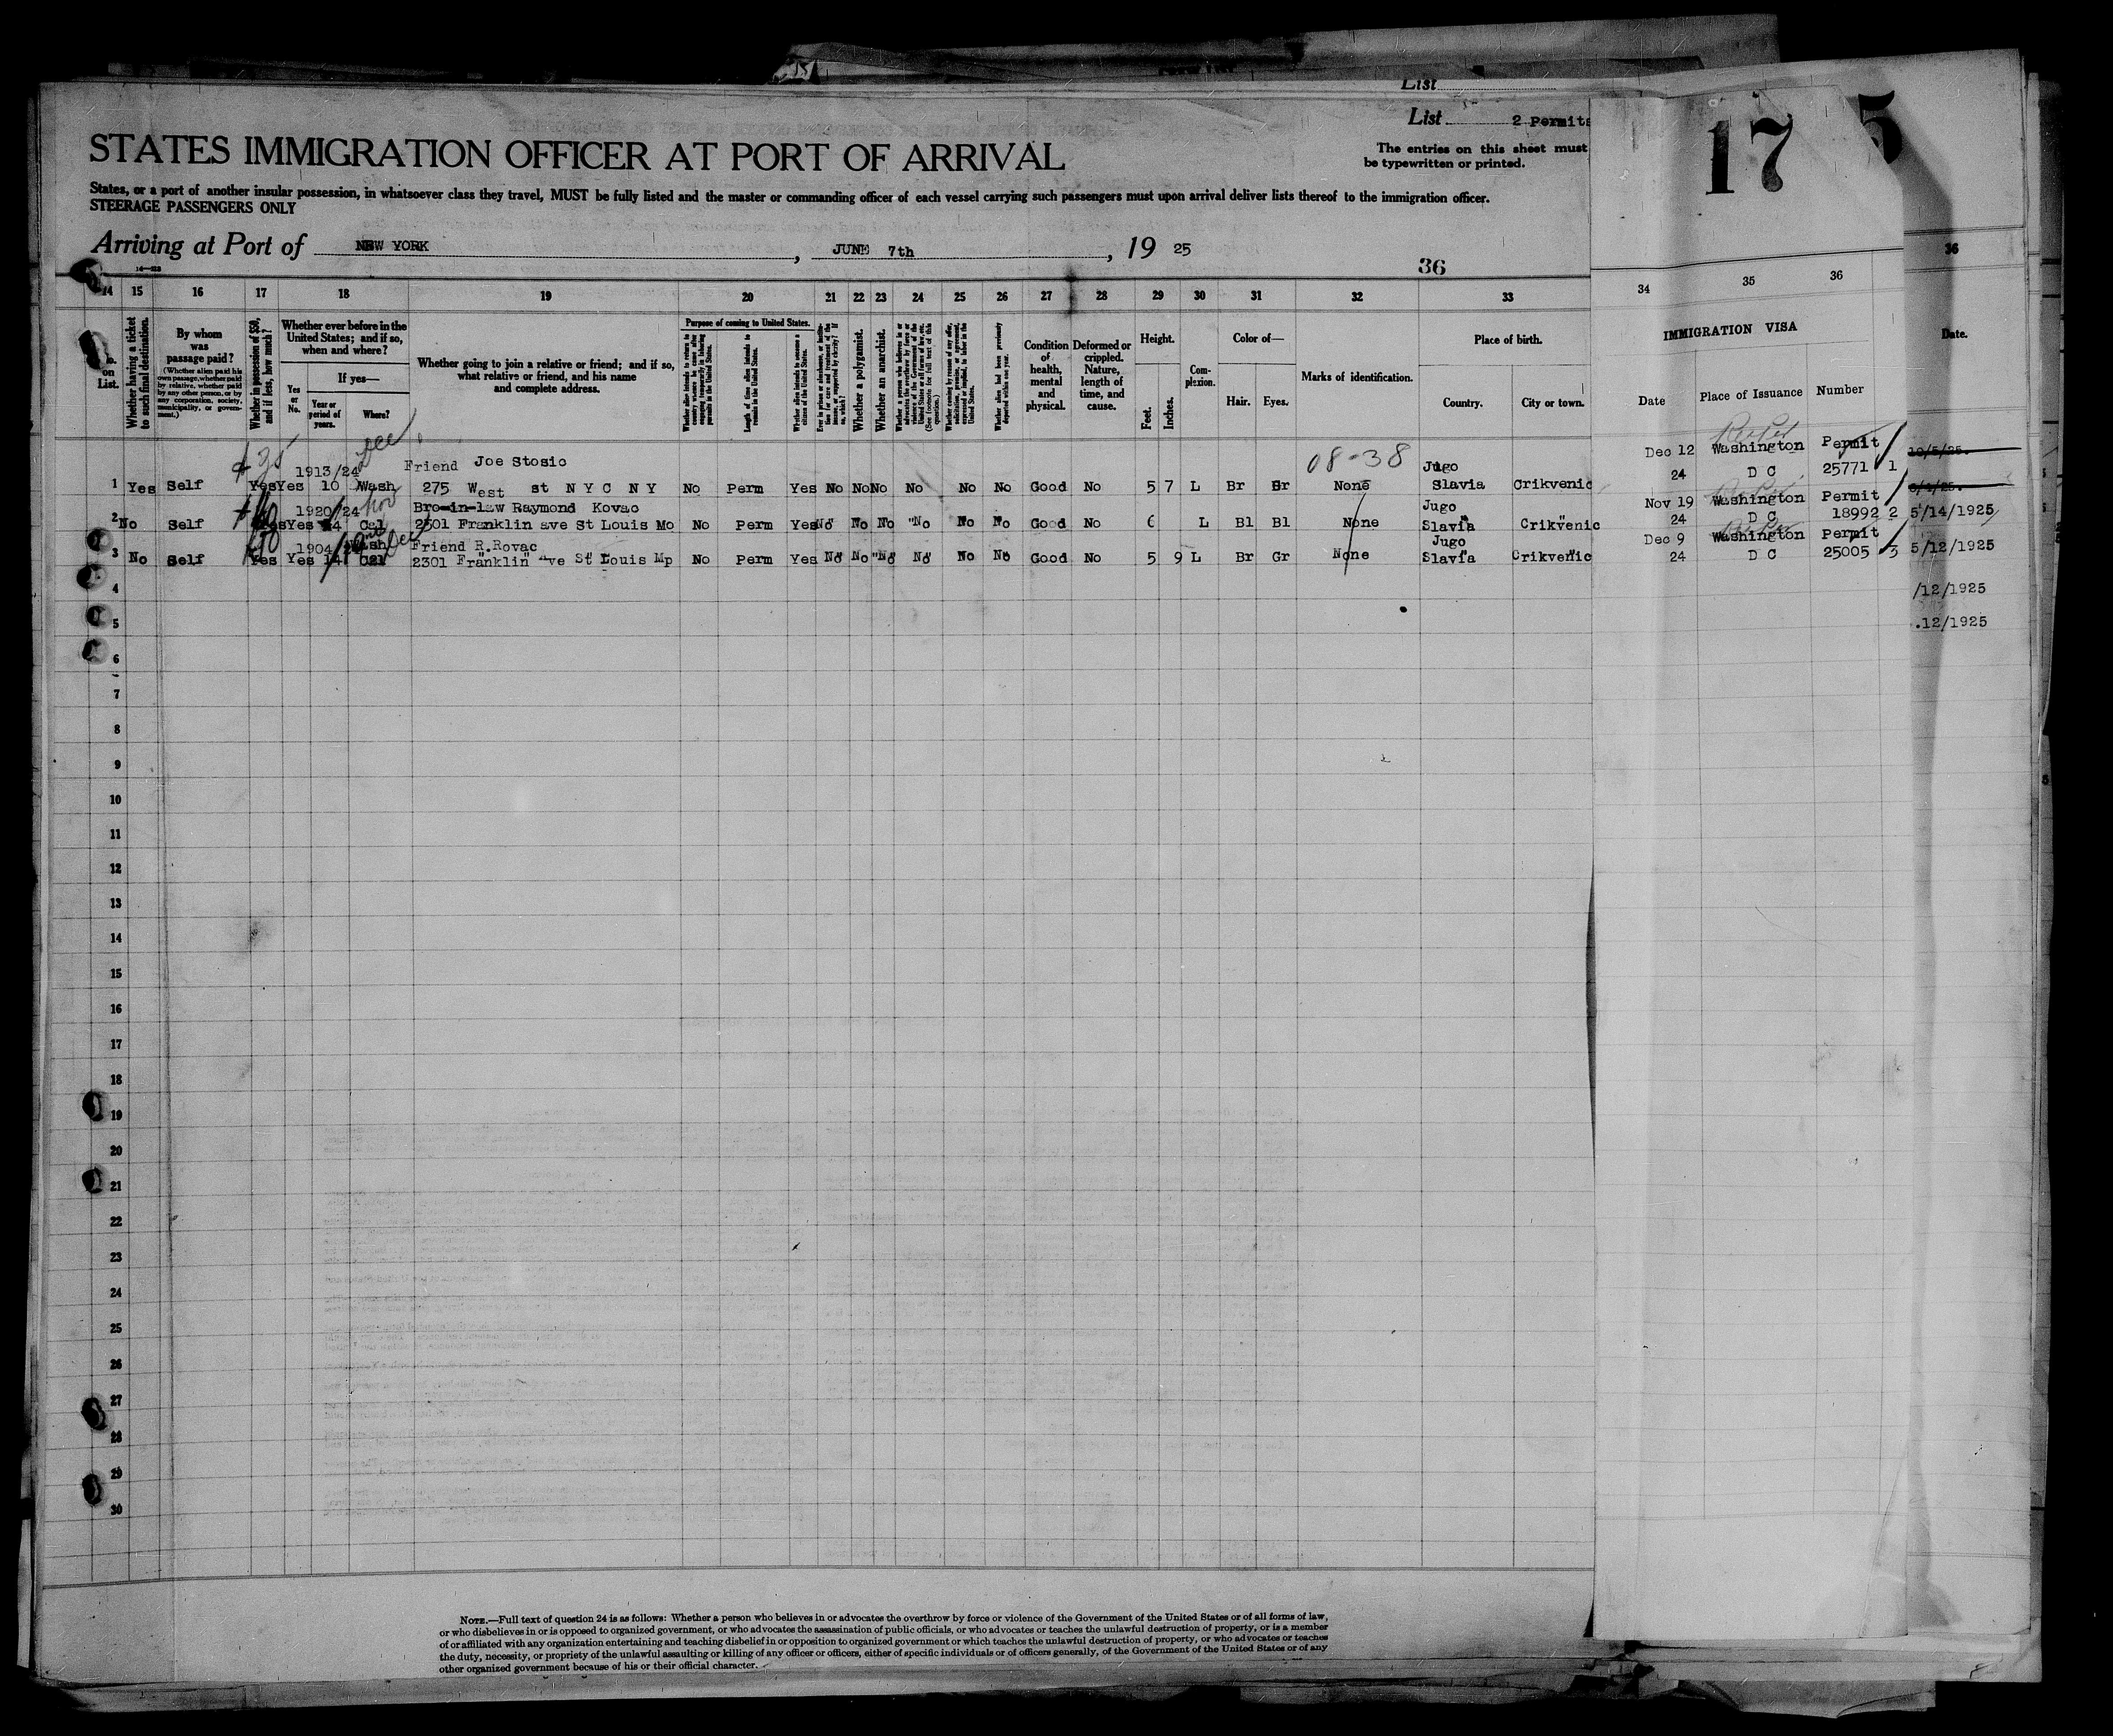 List
List 2 Permits
The entries on this sheet must
be typewritten or printed.
17 5
STATES IMMIGRATION OFFICER AT PORT OF ARRIVAL
States, or a port of another insular possession, in whatsoever class they travel, MUST be fully listed and the master or commanding officer of each vessel carrying such passengers must upon arrival deliver lists thereof to the immigration officer.
STEERAGE PASSENGERS ONLY
Arriving at Port of NEW YORK, JUNE 7th, 19 25
36
14 15 16 17 18 19 20 21 22 23 24 25 26 27 28 29 30 31 32 33 34 35 36 36
on List.
Whether having a ticket to such final destination.
By whom was passage paid?
(Whether alien paid his own passage, whether paid by relative, whether paid by any other person, or by any corporation, society, municipality, or government.)
Whether in possession of $50, and if less, how much?
Whether ever before in the United States; and if so, when and where?
Yes or No.
If yes—
Year or period of years.
Where?
Whether going to join a relative or friend; and if so, what relative or friend, and his name and complete address.
Purpose of coming to United States.
Whether alien intends to return to country whence he came after engaging temporarily in laboring pursuits in the United States.
Length of time alien intends to remain in the United States.
Whether alien intends to become a citizen of the United States.
Whether a polygamist.
Whether an anarchist.
Whether coming by reason of any offer, solicitation, promise, or agreement, expressed or implied, to labor in the United States.
Whether alien had been previously deported within one year.
Condition of health, mental and physical.
Deformed or crippled. Nature, length of time, and cause.
Height.
Feet. Inches.
Complexion.
Color of—
Hair. Eyes.
Marks of identification.
Place of birth.
Country. City or town.
IMMIGRATION VISA
Date Place of Issuance Number
Date.
Dec
1913/24 Friend Joe Stosic 08-38 Jugo Dec 12 Washington Permit 10/5/25.
1 Yes Self Yes Yes 10 Wash 275 West st N Y C N Y No Perm Yes No No No No No No Good No 5 7 L Br Gr None Slavia Crikvenic 24 D C 25771 1
1920/24 Nov Bro-in-law Raymond Kovac Jugo Nov 19 Washington Permit
2 No Self Yes Yes 24 Cal 2301 Franklin ave St Louis Mo No Perm Yes No No No No No No Good No 6 L Bl Bl None Slavia Crikvenic 24 D C 18992 2 5/14/1925
1904/24 Wash Dec Friend R.Rovac Jugo Dec 9 Washington Permit
3 No Self Yes Yes 14 Cal 2301 Franklin ve St Louis Mp No Perm Yes No No No No No No Good No 5 9 L Br Gr None Slavia Crikvenic 24 D C 25005 3 5/12/1925
4 /12/1925
5 .12/1925
6
7
8
9
10
11
12
13
14
15
16
17
18
19
20
21
22
23
24
25
26
27
28
29
30
NOTE.—Full text of question 24 is as follows: Whether a person who believes in or advocates the overthrow by force or violence of the Government of the United States or of all forms of law,
or who disbelieves in or is opposed to organized government, or who advocates the assassination of public officials, or who advocates or teaches the unlawful destruction of property, or is a member
of or affiliated with any organization entertaining and teaching disbelief in or opposition to organized government or which teaches the unlawful destruction of property, or who advocates or teaches
the duty, necessity, or propriety of the unlawful assaulting or killing of any officer or officers, either of specific individuals or of officers generally, of the Government of the United States or of any
other organized government because of his or their official character.